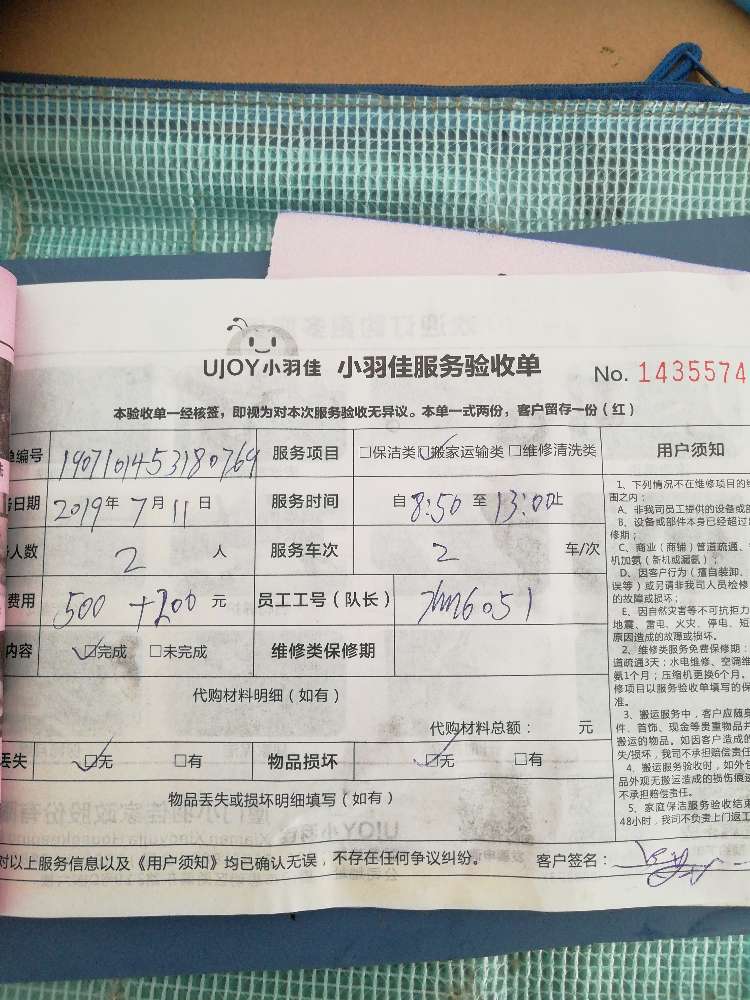 UJOY小羽佳 小羽佳服务验收单 No. 1435574
本验收单一经核签，即视为对本次服务验收无异议。本单一式两份，客户留存一份（红）
单编号 1907101453180769 服务项目 □保洁类 ☑搬家运输类 □维修清洗类 用户须知
日期 2019年7月11日 服务时间 自8:50至13:00止
人数 2 人 服务车次 2 车/次
费用 500+200 元 员工工号（队长） 6051
内容 ☑完成 □未完成 维修类保修期
代购材料明细（如有）
代购材料总额： 元
丢失 ☑无 □有 物品损坏 ☑无 □有
物品丢失或损坏明细填写（如有）
对以上服务信息以及《用户须知》均已确认无误，不存在任何争议纠纷。 客户签名：
1、下列情况不在维修项目的
围之内：
A、非我司员工提供的设备或
B、设备或部件本身已经超过
修期；
C、商业（商铺）管道疏通、
机加氨（新机或漏氨）；
D、因客户行为（擅自装卸、
误等）或另请非我司人员检修
的故障或损坏；
E、因自然灾害等不可抗拒力
地震、雷电、火灾、停电、短
原因造成的故障或损坏。
2、维修类服务免费保修期：
道疏通3天；水电维修、空调维
氨1个月；压缩机更换6个月。
修项目以服务验收单填写的保
准。
3、搬运服务中，客户应随身
件、首饰、现金等贵重物品并
搬运的物品。如因客户造成的
失/损坏，我司不承担赔偿责任
4、搬运服务验收时，如外包
品外观无搬运造成的损伤痕迹
不承担赔偿责任。
5、家庭保洁服务验收结束
48小时，我司不负责上门返工